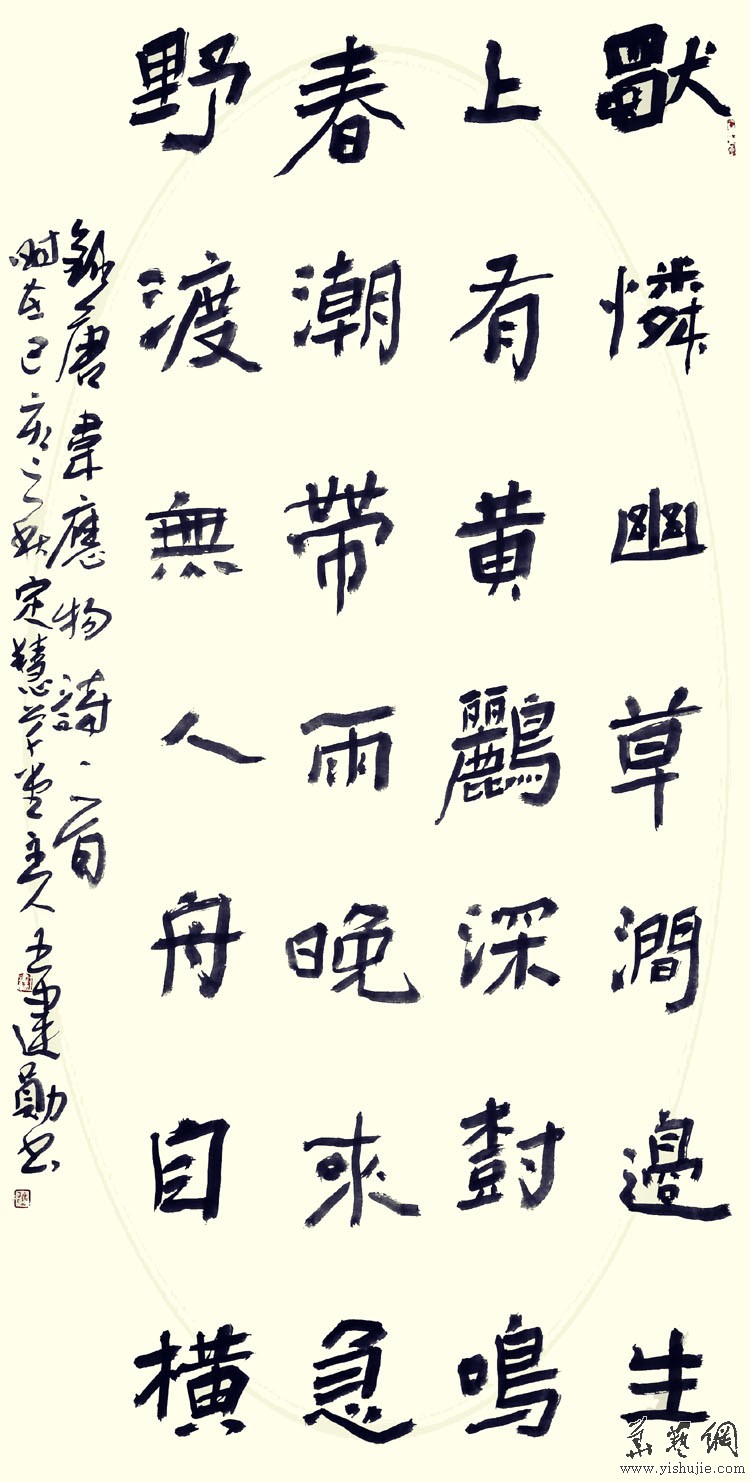 獨憐幽草澗邊生
上有黄鸝深樹鳴
春潮帶雨晚來急
野渡無人舟自橫
錄唐韋應物詩一首
時在己亥之秋定慧草堂主人王建勛書
華藝網
www.yishujie.com